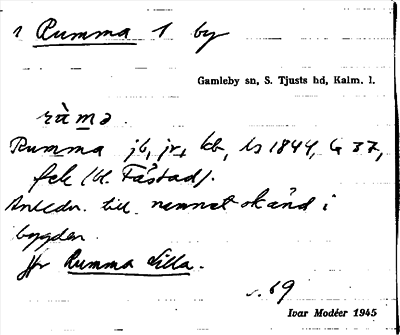 1 Rumma 1 by
Gamleby sn, S. Tjusts hd, Kalm. l.
ràmə.
Rumma jb, jr, kb, ls 1844, G 37,
fek (bl. Fåstad).
Anledn. till namnet okänd i
bygden.
Jfr Rumma Lilla.
s. 69
Ivar Modéer 1945